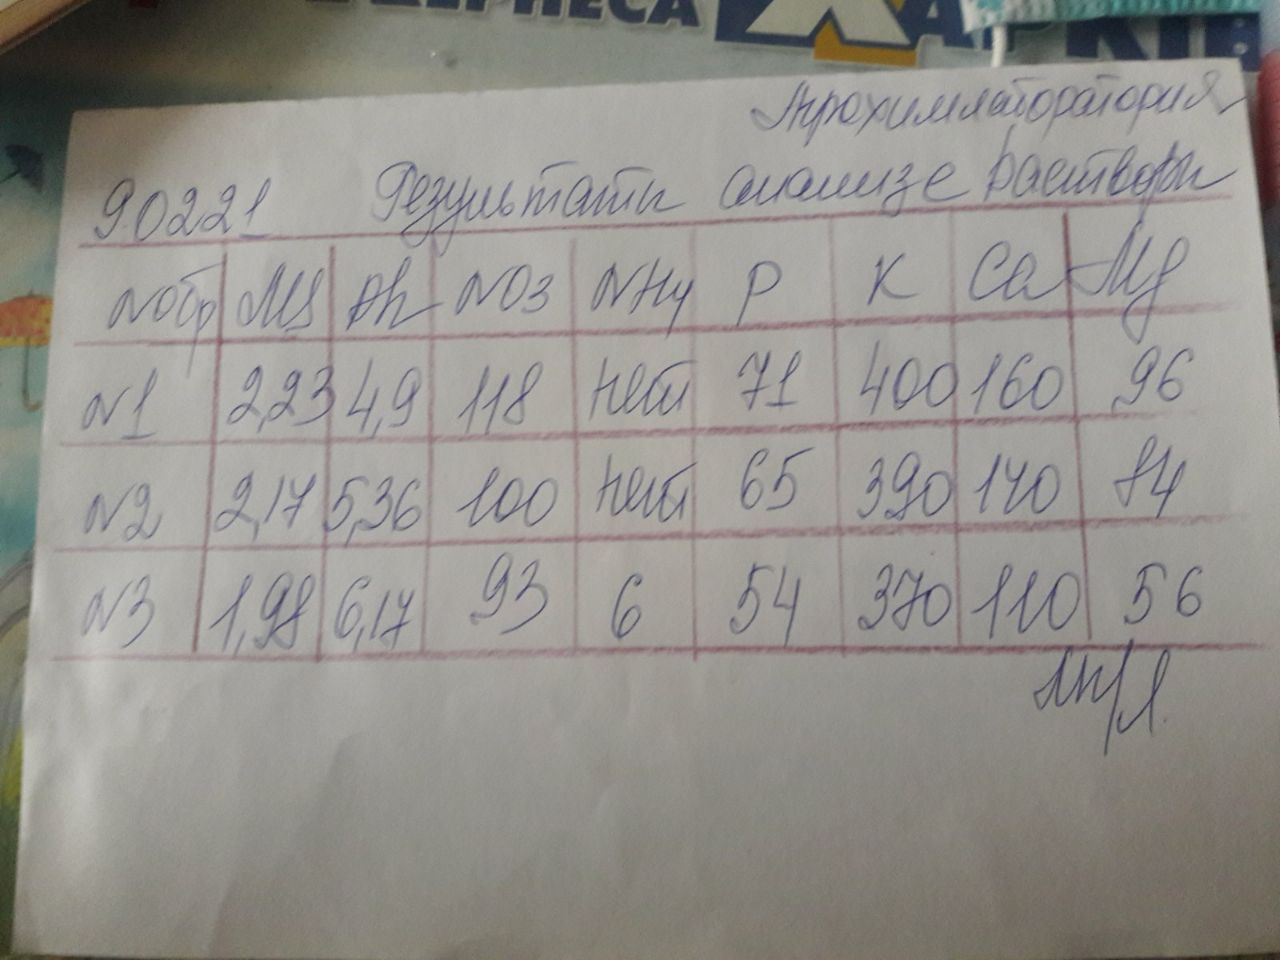 ХАРКІВ
Агрохимлаборатория
90221 Результаты анализе раствора
Nобр MS Ph NO3 NH4 P K Ca Mg
N1 2,23 4,9 118 нет 71 400 160 96
N2 2,17 5,36 100 нет 65 390 140 84
N3 1,98 6,17 93 6 54 370 110 56
мг/л.